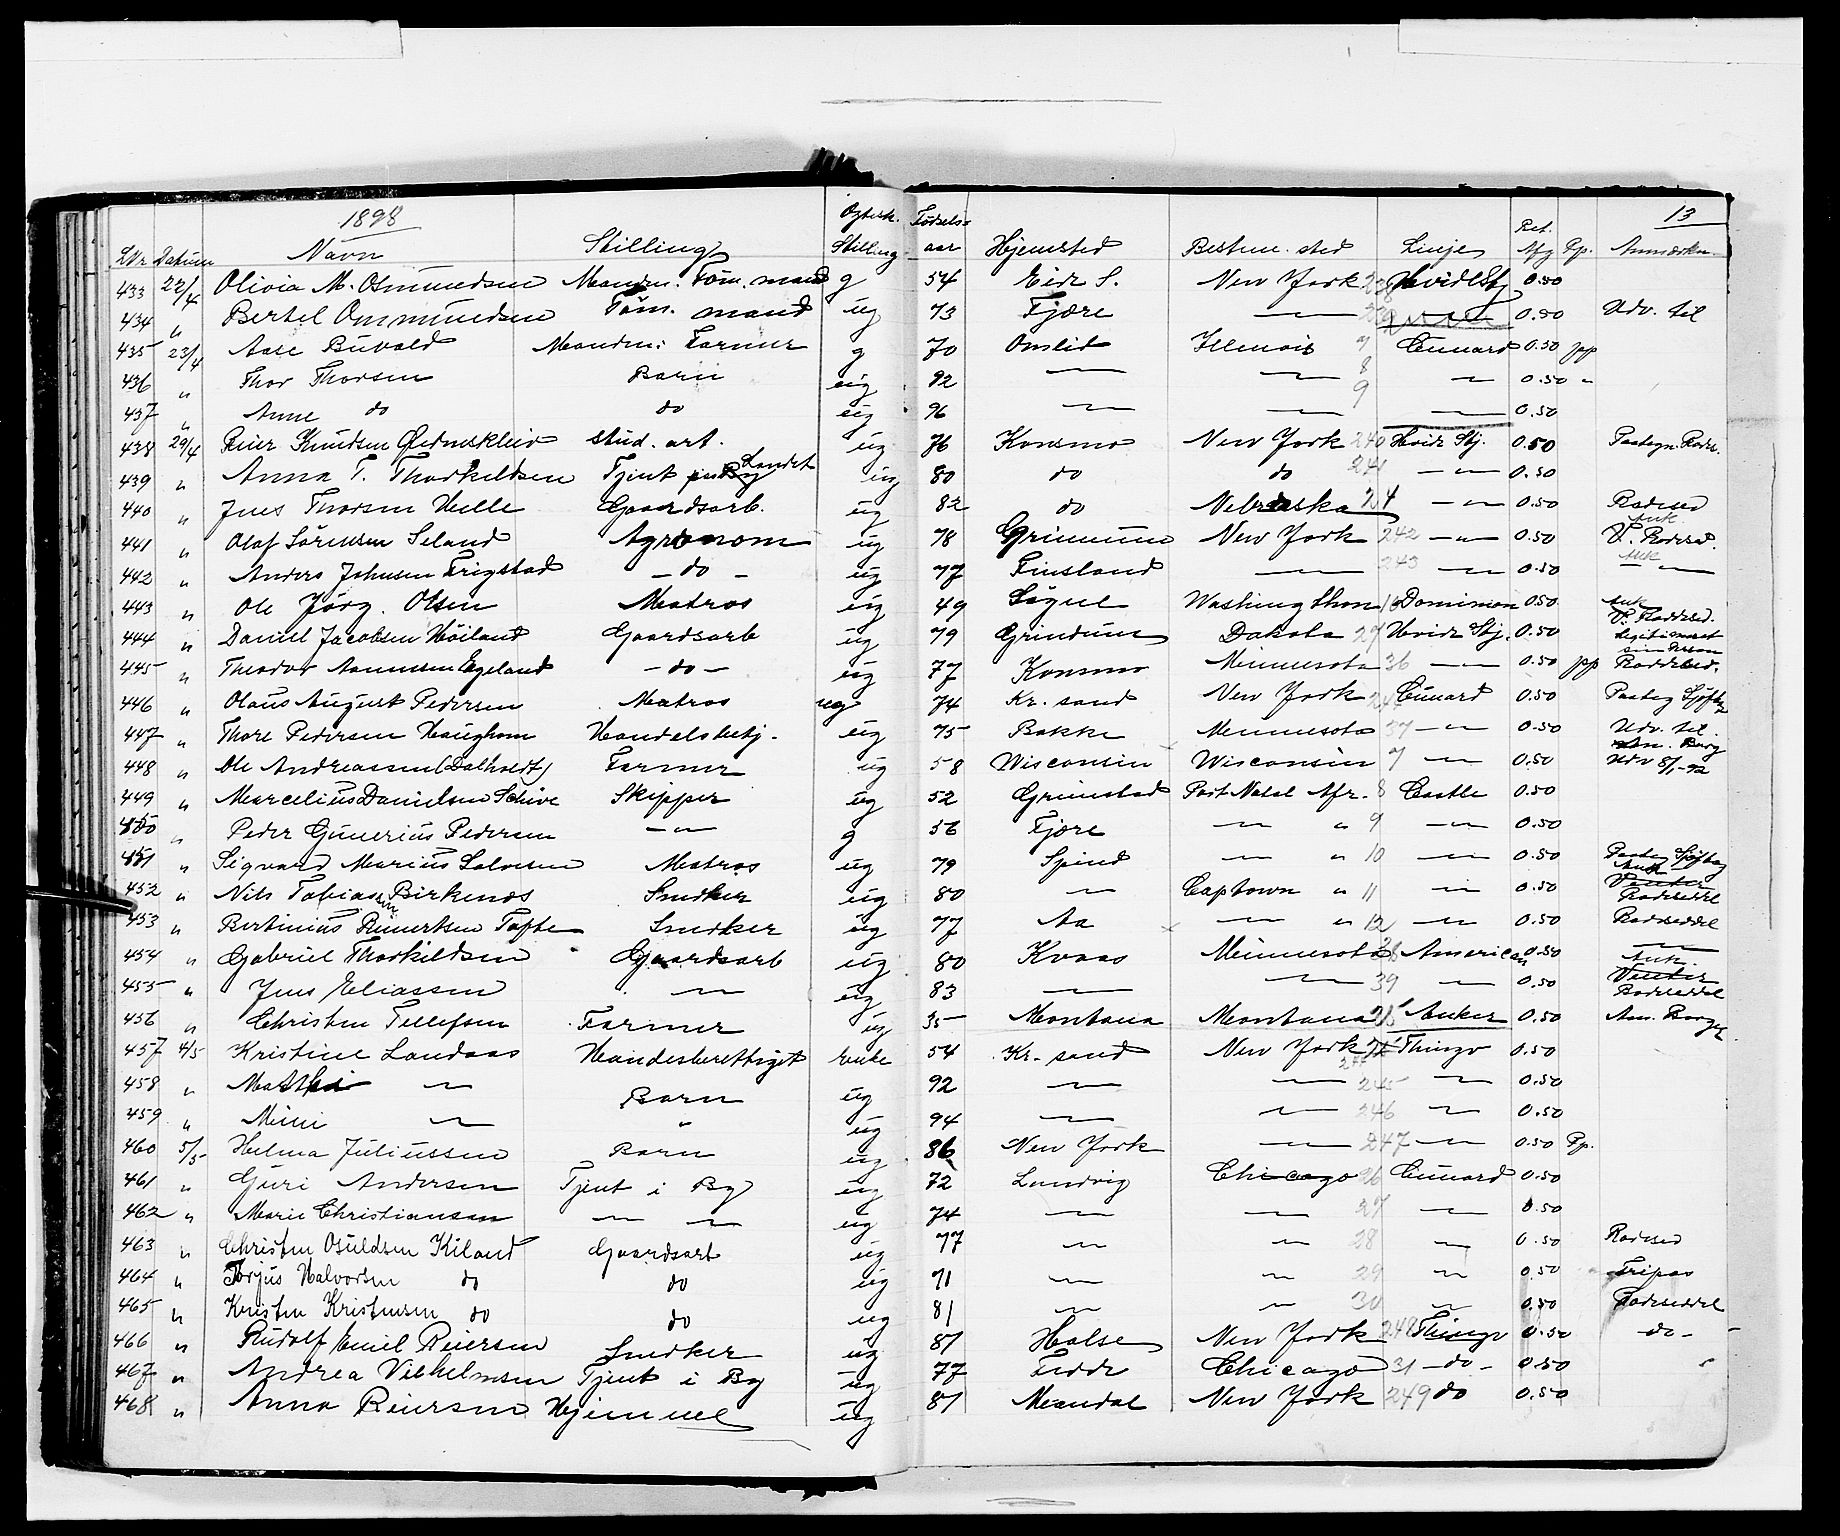 1898
13
LNr Datum Navn Stilling Ægtesk. Stilling Fødsels- aar Hjemsted Bestem. sted Linje Bet. Afg Pp. Anmærkn.
433 22/4 Olivia M. Osmundsen Manden: Töm. mand g 54 Eide S. New York Hvide Stj 0.50
434 " Bertel Ommundsen Töm. mand ug 73 Fjære — 0.50 Udv. til
435 23/4 Aase Buvold Manden: Farmer g 70 Omlid Illenois Cunard 0.50 pp
436 " Thor Thorsen Barn ug 92 — — 8 — " — 0.50 "
437 " Anne do do ug 96 — — 9 — 0.50
438 29/4 Reier Knudsen stud. art. ug 76 Konsmo New York 240 Hvide Stj. 0.50
439 " Anna T. Thorkildsen Tjent paa Landet ug 80 do do 241 — " — 0.50
440 " Jens Thorsen Helle Gaardsarb. ug 82 do Nebraska 24 — " — 0.50 Rodesed
441 " Olof Sörensen Seland Agronom ug 78 Grimum New York 242 — " — 0.50 V. Rodesed.
442 " Anders Johnsen Trigstad — do — ug 77 Finsland — 243 — " — 0.50 Ank —
443 " Ole Jörg. Olsen Matros ug 49 Sögne Washingthon 16 Dominion 0.50 Ank V. Roddesed.
444 " Daniel Jacobsen Höiland Gaardsarb ug 79 Grindum Dakota 27 Hvide Stj. 0.50 Legitimeret sin Person
445 " Theodor Aanensen Egeland — do — ug 77 Konsmo Minnesota 36 — " — 0.50 pp Roddesed.
446 " Olaus August Pedersen Matros ug 74 Kr. sand New York Cunard 0.50 Pasteg Sjöfbog
447 " Thore Pedersen Haughom Handelsbetj. ug 75 Bakke Minnesota 37 — " — 0.50 Udv. til.
448 " Ole Andreassen (Dalholdt) Farmer ug 58 Wisconsin Wisconsin 7 — " — 0.50 Am. Borg Udv 5/1-92
449 " Marcelius Danielsen Schive Skipper ug 52 Grimstad Port Natal Afr. 8 Castle 0.50
450 " Peder Gunerius Pedersen — " — g 56 Fjære — " 9 — " — 0.50
451 " Sigvard Marius Salvesen Matros ug 79 Spind — " 10 — " — 0.50 Pasteg Sjöfbog
452 " Nils Tobiassen Birkenes Snedker ug 80 — " — Captown " 11 — " — 0.50 Ank Rodeseddel
453 " Bertinius Reinertsen Tofte Snedker ug 77 Aa — " 12 — " — 0.50 Rodeseddel
454 " Gabriel Thorkildsen Gaardsarb ug 80 Kvaas Minnesota 38 American 0.50 —
455 " Jens Eliassen — " — ug 83 — — 39 — " — 0.50 Ank. Rodeseddel
456 " Christen Tellefsen Farmer ug 35 Montana Montana Anker 0.50 Am. Borger
457 4/5 Kristine Landaas Handesberettiget enke 54 Kr. sand New York Thingv 0.50
458 " Mathi — " — Barn ug 92 — — 245 — " — 0.50
459 " Mini — " — " ug 94 — — 246 — " — 0.50
460 5/5 Helma Juliussen Barn ug 86 New York — 247 — " — 0.50 Pp.
461 " Guri Andersen Tjent i By ug 72 Landvig Chicago 26 Cunard 0.50
462 " Marie Christiansen — " — " — ug 74 — — 27 — " — 0.50
463 " Christen Osuldsen Kiland Gaardsarb ug 77 — " — — " — 28 — " — 0.50 Rodesed
464 " Torjus Halvorsen do do ug 71 — " — — " — 29 — " — 0.50 Fripas
465 " Kristen Kristensen do do ug 81 — " — — " — 30 — " — 0.50 Rodeseddel
466 " Rudolf Emil Reiersen Snedker ug 81 Halse New York 248 Thingv 0.50 — do —
467 " Andrea Vilhelmsen Tjent i By ug 77 Chicago 31 — do — 0.50
468 " Anna Reiersen Hjemmet ug 81 Mandal New York 249 do 0.50